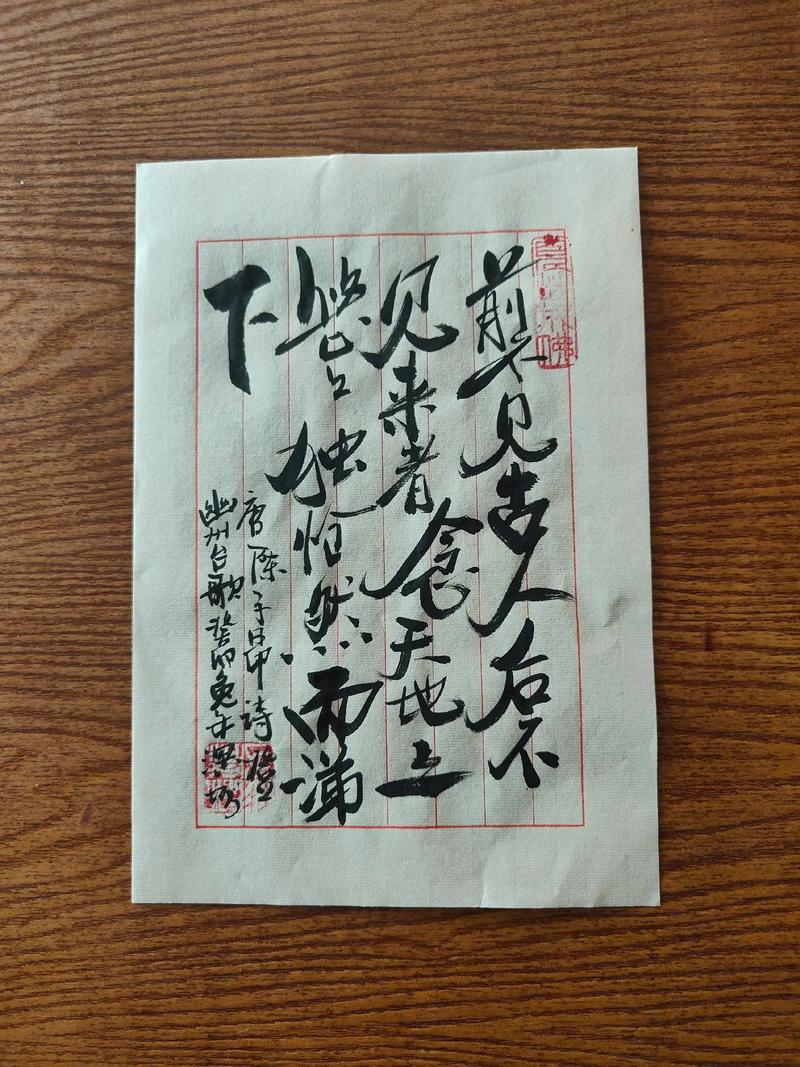 前不见古人后不
见来者念天地之
悠悠独怆然而涕
下
唐陈子昂诗登
幽州台歌癸卯兔年